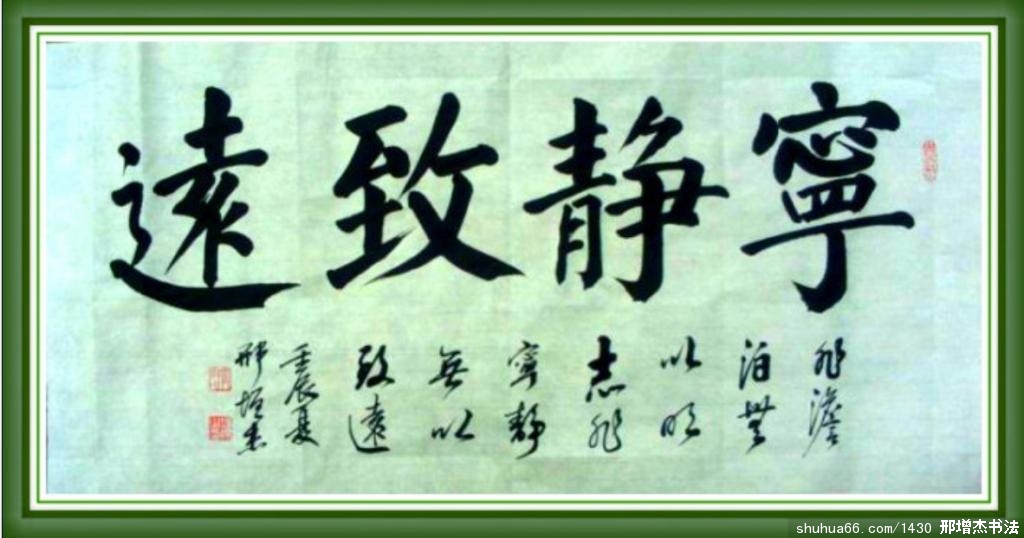 寧靜致遠
非澹
泊無
以明
志非
寧靜
無以
致遠
壬辰夏
邢增杰
shuhua66.com/1430 邢增杰书法